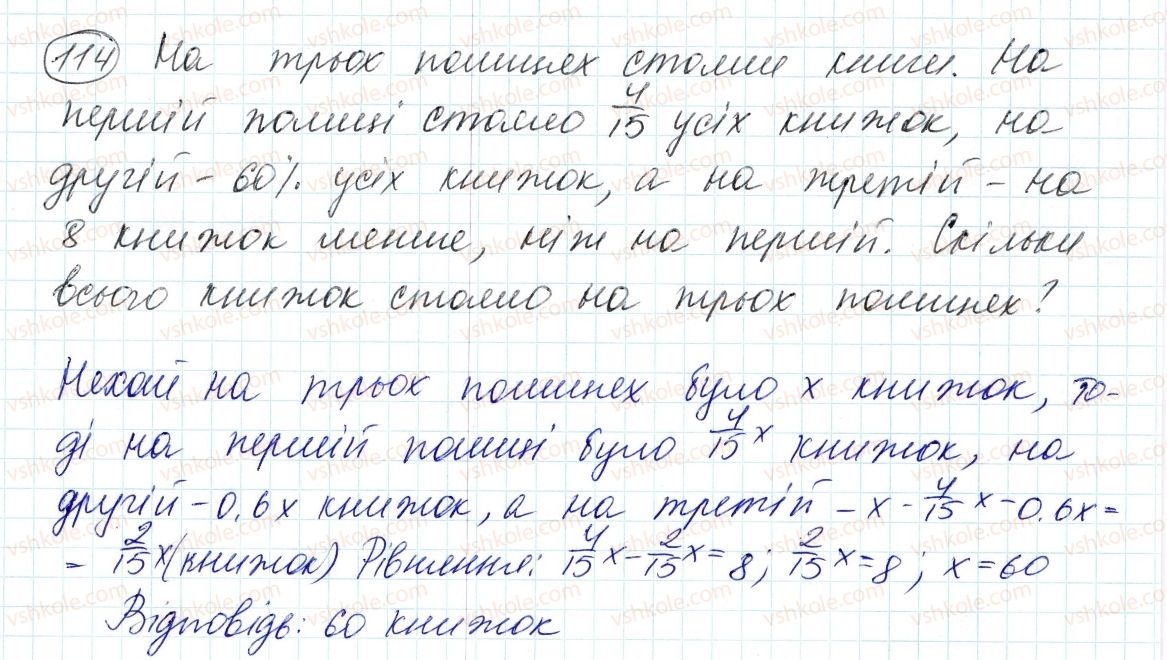 114 На трьох полицях стояли книги. На
першій полиці стояло 4/15 усіх книжок, на
другій - 60% усіх книжок, а на третій - на
8 книжок менше, ніж на першій. Скільки
всього книжок стояло на трьох полицях?
Нехай на трьох полицях було x книжок, то-
ді на першій полиці було 4/15 x книжок, на
другій - 0,6x книжок, а на третій - x - 4/15 x - 0,6x =
= 2/15 x (книжок) Рівняння: 4/15 x - 2/15 x = 8; 2/15 x = 8; x = 60
Відповідь: 60 книжок